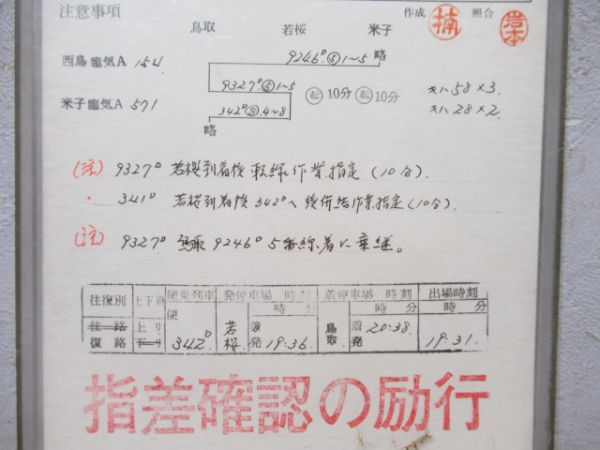 注意事項
作成 楠 照合 岩本
鳥取 若桜 米子
9246D ⑤1~5 略
西鳥臨気A 154
9327D ⑤1~5 転 10分 転 10分 キハ58×3.
米子臨気A 571
342D ⑤.4~8 キハ28×2.
略
(注) 9327D 若桜到着後 転線作業指定 (10分).
〃 341D 若桜到着後 342Dへ 後併結作業指定 (10分).
(注) 9327D 鳥取 9246D 5番線着に乗継。
往復別 上下別 便乗列車 発停車場 時刻 着停車場 時刻 出場時刻
便 時 分 時 分 時 分
往路 上り 若 着 鳥 着 20:38.
復路 下り 342D 桜 発 19:36. 取 発 19:31.
指差確認の励行